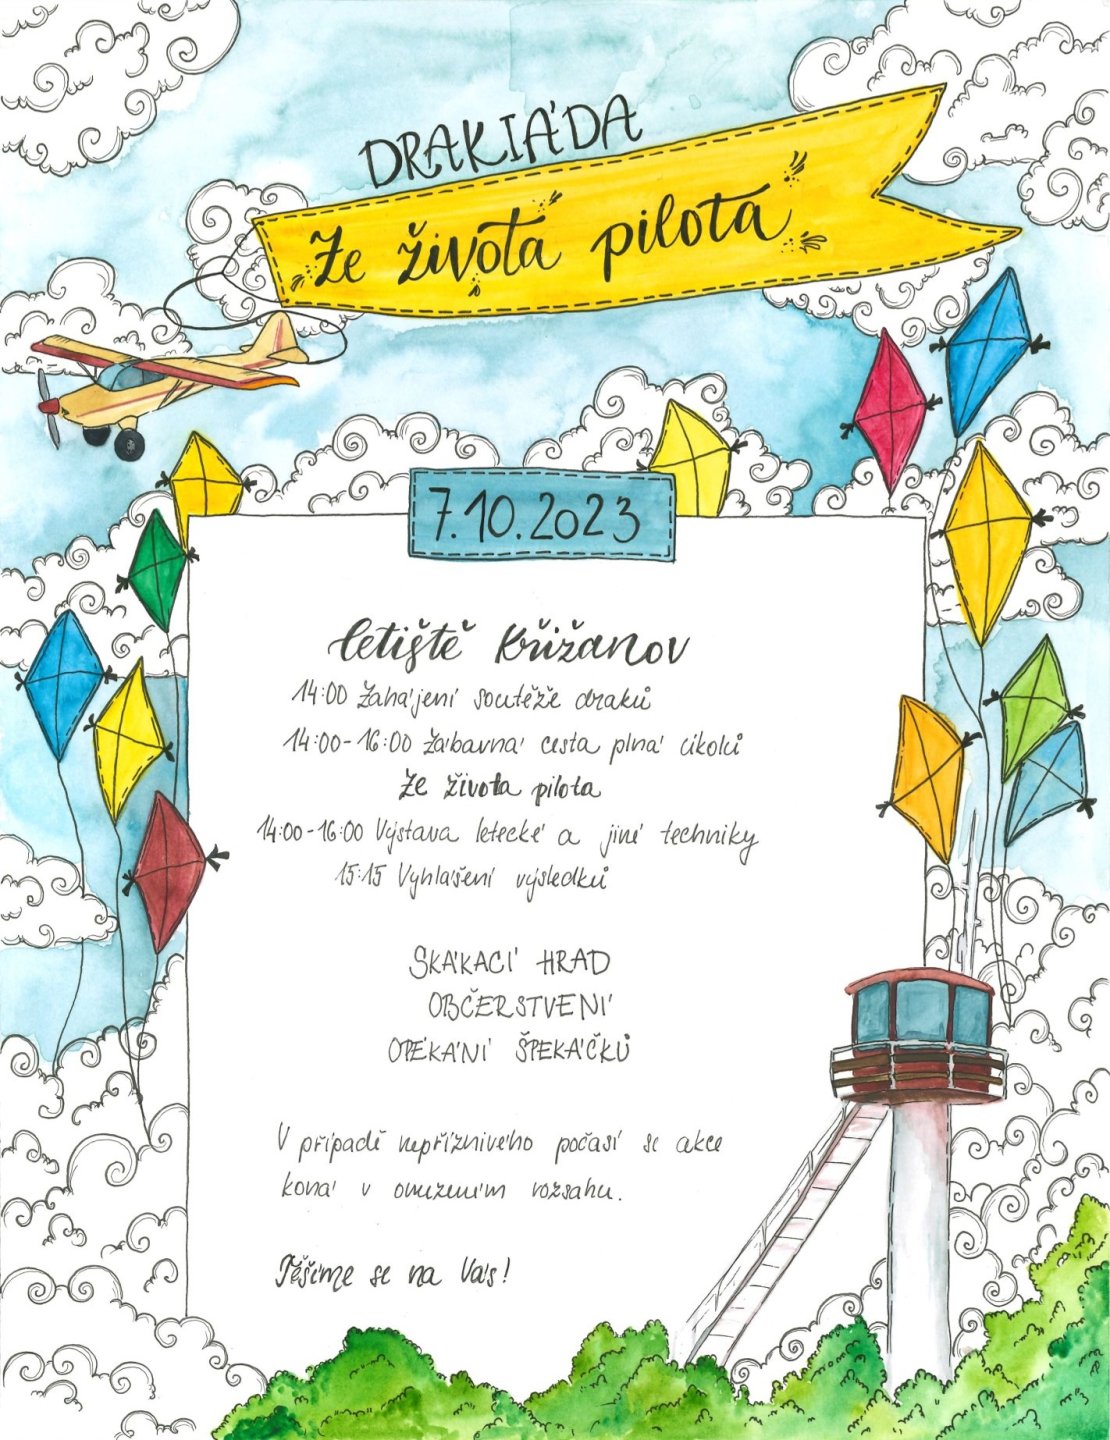 DRAKIÁDA
Ze života pilota
7.10.2023
letiště Křižanov
14:00 Zahájení soutěže draků
14:00-16:00 Zábavná cesta plná úkolů
Ze života pilota
14:00-16:00 Výstava letecké a jiné techniky
15:15 Vyhlášení výsledků
SKÁKACÍ HRAD
OBČERSTVENÍ
OPÉKÁNÍ ŠPEKÁČKŮ
V případě nepříznivého počasí se akce
koná v omezeném rozsahu.
Těšíme se na Vás!